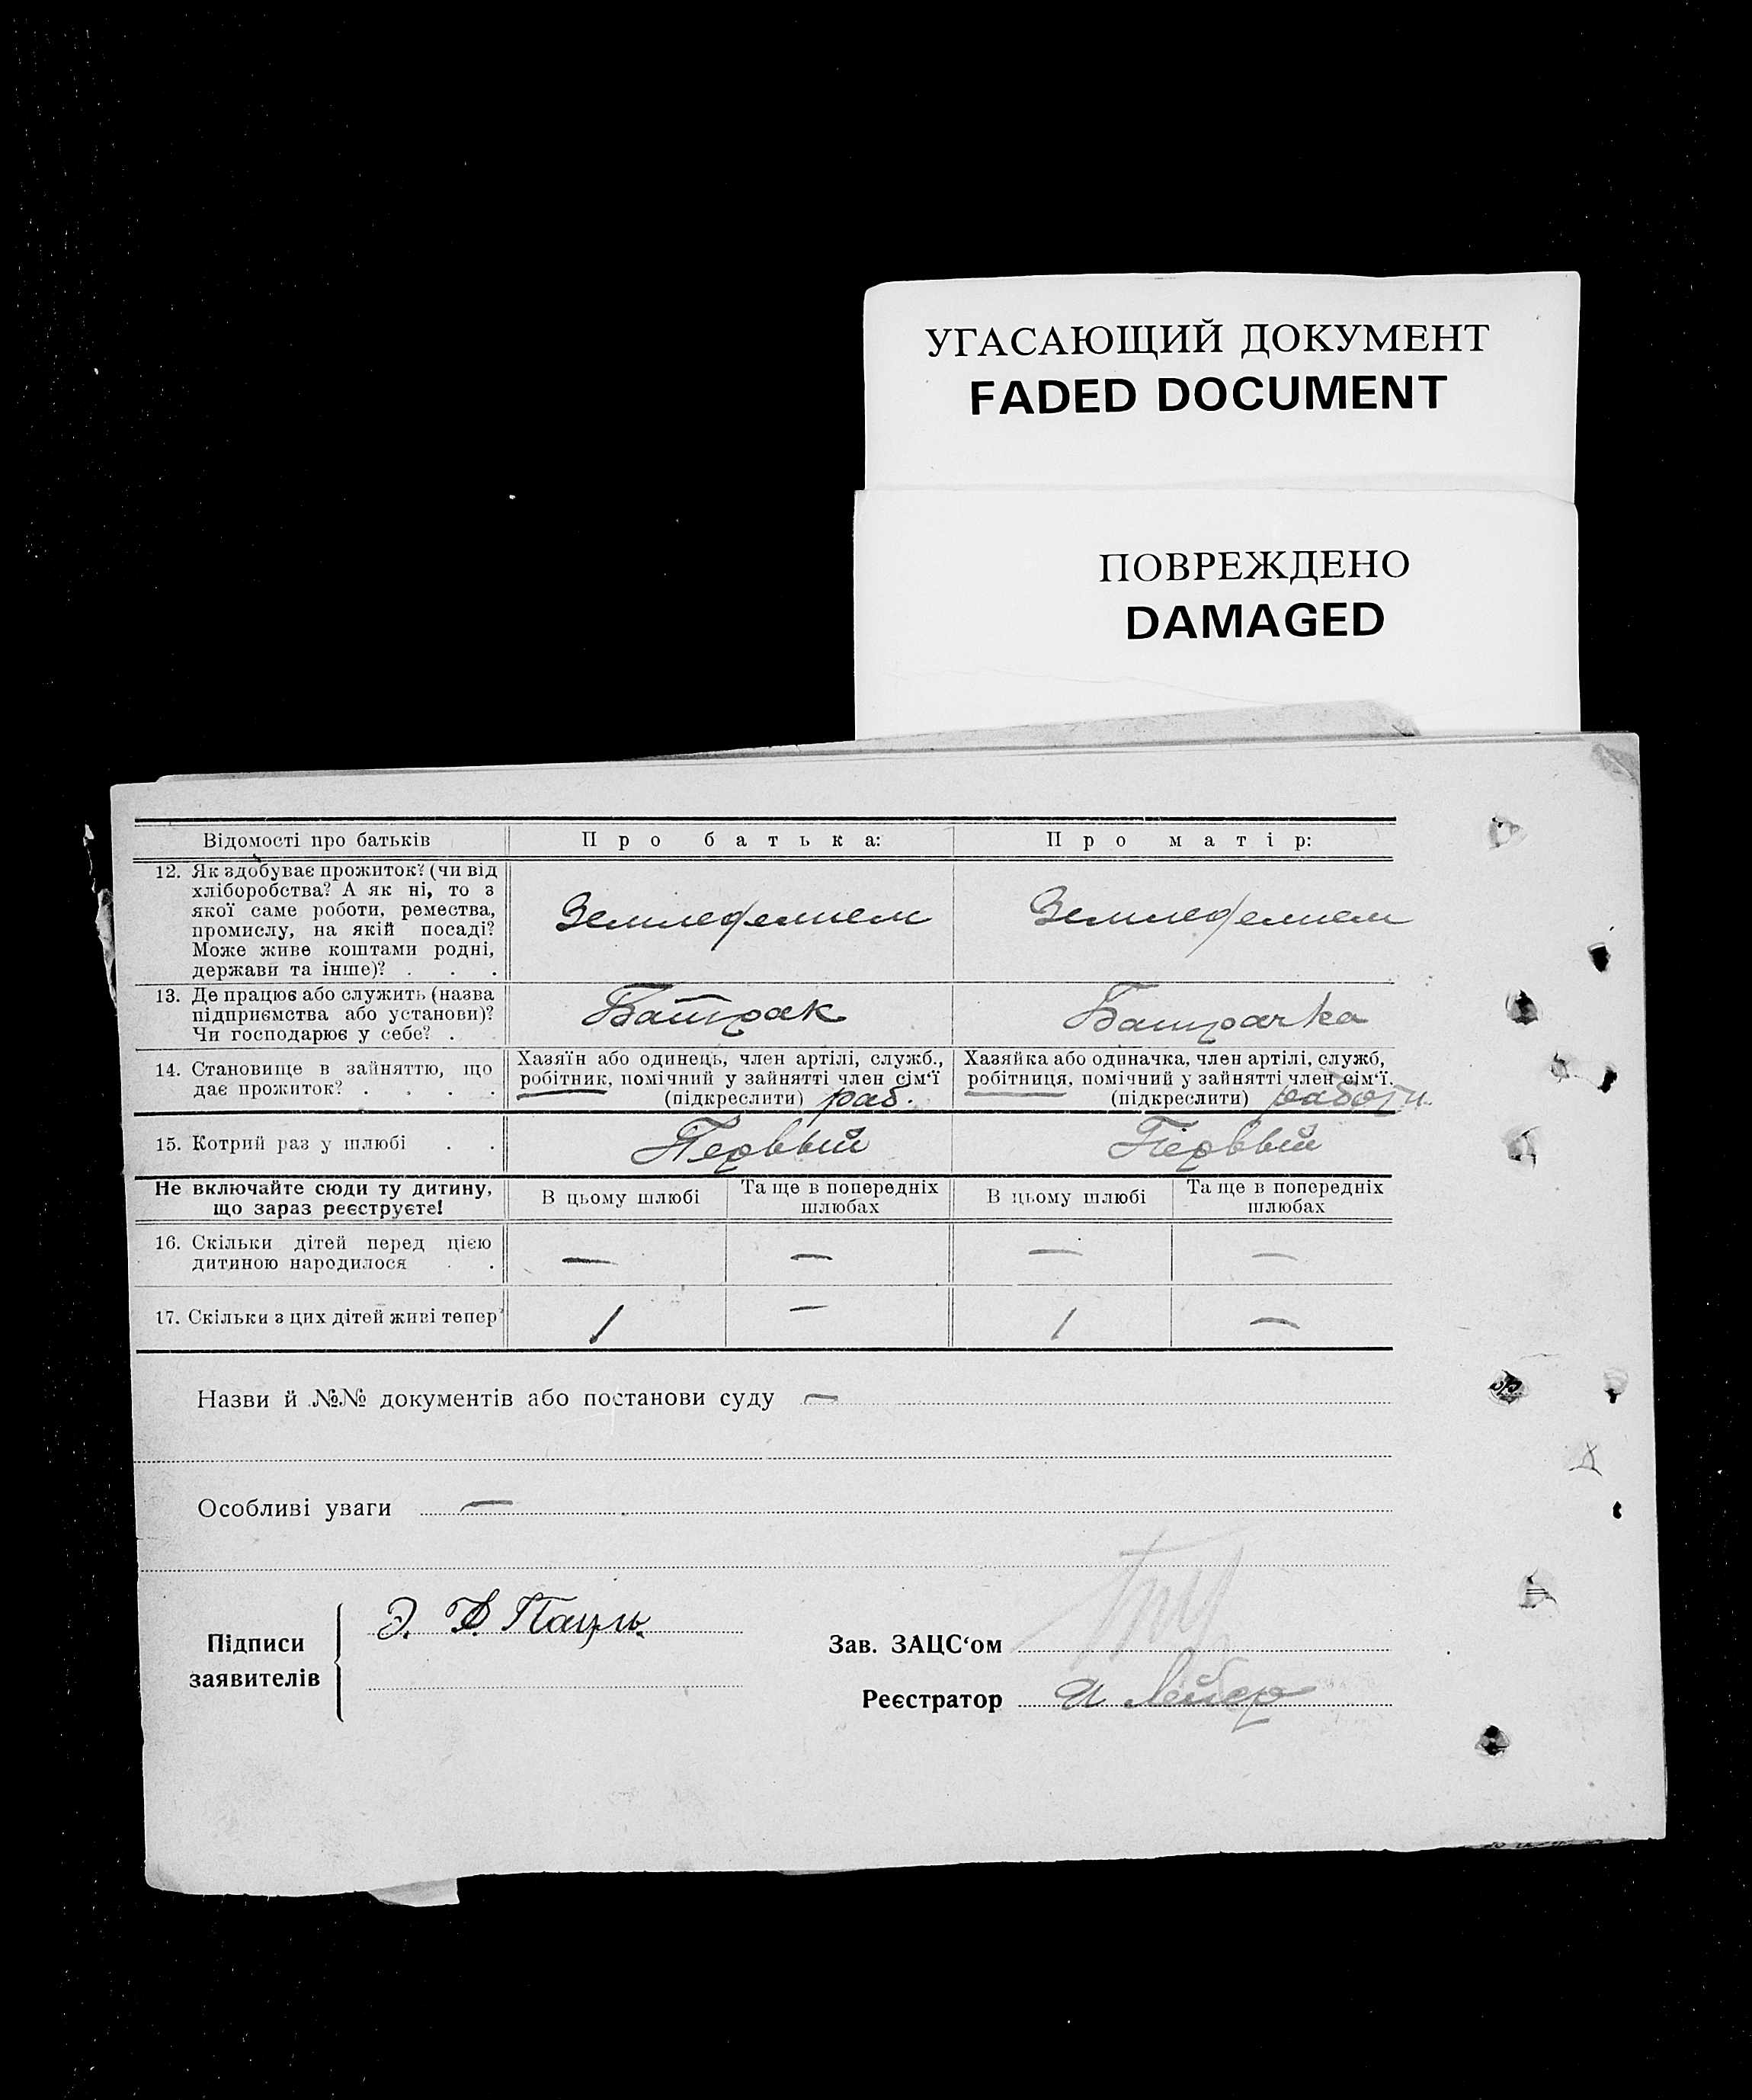 УГАСАЮЩИЙ ДОКУМЕНТ
FADED DOCUMENT
ПОВРЕЖДЕНО
DAMAGED
Відомості про батьків
Про батька:
Про матір:
12. Як здобуває прожиток? (чи від
хліборобства? А як ні, то з
якої саме роботи, ремества,
промислу, на якій посаді?
Може живе коштами родні,
держави та інше)? . . .
Земледелием
Земледелием
13. Де працює або служить (назва
підприємства або установи)?
Чи господарює у себе? .
Батрак
Батрачка
14. Становище в зайняттю, що
дає прожиток? . . . .
Хазяїн або одинець, член артілі, служб.,
робітник, помічний у зайнятті член сім'ї
(підкреслити) раб.
Хазяйка або одиначка, член артілі, служб,
робітниця, помічний у зайнятті член сім'ї.
(підкреслити) работн.
15. Котрий раз у шлюбі . .
Первый
Первый
Не включайте сюди ту дитину,
що зараз реєструєте!
В цьому шлюбі
Та ще в попередніх
шлюбах
В цьому шлюбі
Та ще в попередніх
шлюбах
16. Скільки дітей перед цією
дитиною народилося . .
— — — —
17. Скільки з цих дітей живі тепер?
1 — 1 —
Назви й №№ документів або постанови суду —
Особливі уваги —
Підписи
заявителів
Э. Ф. Пауль
Зав. ЗАЦС'ом
Реєстратор И Лейер